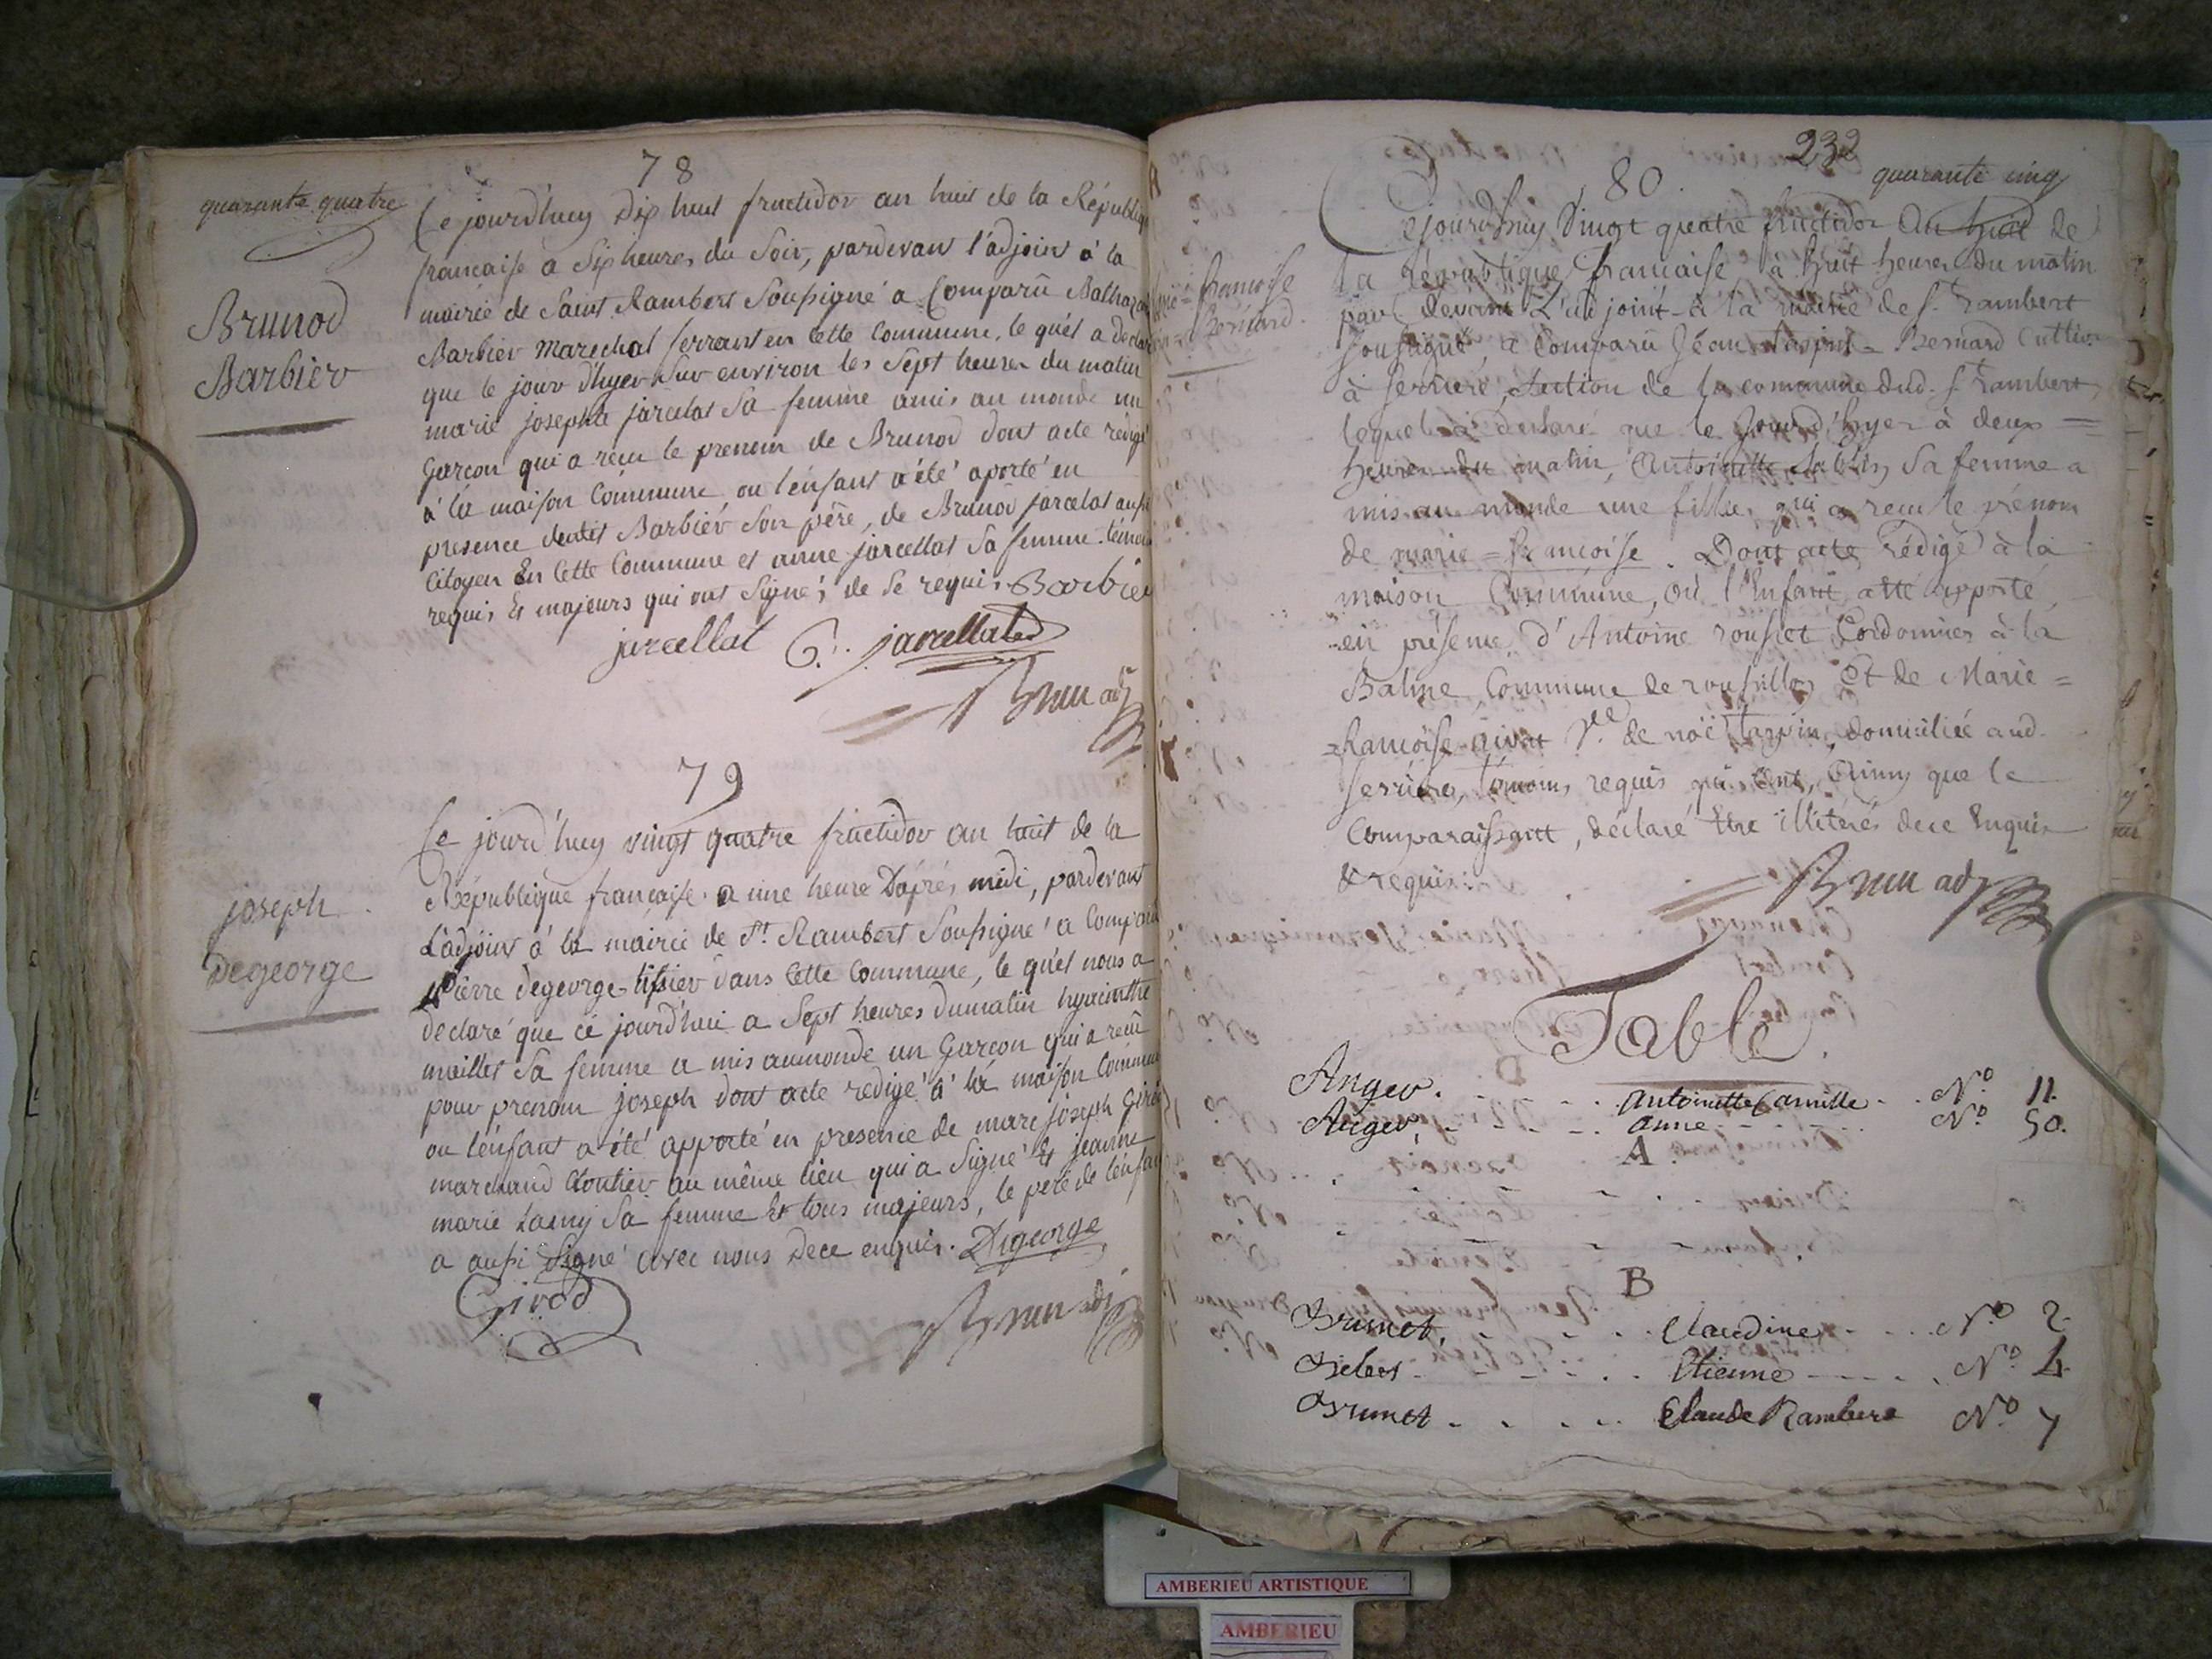 quarante quatre
78
Ce jourd'huy Dix huit fructidor an huit de la Républiq
francaise a Six heures du Soir, pardevant l'adjoint à la
mairie de Saint Rambert Soussigné a Comparû Balthazar
Brunod
Barbier
Barbier Marechal ferrant en Cette Commune, le quél a declar
que le jour d'hyer Sur environ les Sept heures du matin
marie josephte jarcelat Sa femme amis au monde un
Garcon qui a recu le prenom de Brunod dont acte redigé
à la maison Commune ou lénfant a été aporté en
presence dudit Barbiér Son père, de Brunod jarcelat aussi
Citoyen En Cette Commune et anne jarcellat Sa femme. témoin
requis Et majeurs qui ont Signés de Se requis Barbier
jarcellat C. jarcellated
Brun adj
79
Ce jourd'huy vingt quatre fructidor an huit de la
République francaise a une heure Dáprés midi, pardevant
joseph
Degeorge
L'adjoint à la mairie de St. Rambert Soussigné a Comparu
Pierre degeorge tissier dans Cette Commune, le quél nous a
declaré que ce jourd'hui a Sept heures dumatin hyacinthe
maillet Sa femme a mis aumonde un Garcon qui a recû
pour prenom joseph dont acte redigé à la maison Commune
ou lénfant a été apporté en presence de marc joseph Girod
marchand Cloutier au même lieu qui a Signé Et jeanne
marie Lasny Sa femme Et tous majeurs, le pere de lénfan
a aussi Signé avec nous Dece enquis. Degeorge
Girod
Brun adj
232
80.
quarante cinq
Cejourdhuy Vingt quatre fructidor An huit de
la république francaise, à huit heures du matin
francoise
Bernard.
par devant L'adjoint à la mairie de s. Rambert
soussigné, a Comparû Jean Bernard Cultiv
à serriere, section de la commune dud. s. Rambert,
lequel a déclaré que le Jourd'hyer à deux =
heures du matin, Antoinette Sa femme a
mis au monde une fille, qui a recu le prénom
de marie = francoise. Dont acte Rédigé à la
maison Commune, où l'Enfant atté apporté
en présence d'Antoine rousset Cordonnier à la
Balme Commune de roussillon Et de Marie =
= francoise Ve. de noël tarpin, domiciliée aud.
serriere, témoins requis qui ont, Ainsy que le
Comparaissant, déclaré être illitérés dece Enquis
& requis.
Brun adj
Table
Anger. . . . Antoinette Camille . . No. 11.
Auger, . . . anne . . . No. 50.
A.
B
Brunet, . . . Claudine . . . No. 2.
Bebert . . . Etienne . . . No. 4.
Brunet . . . Claude Rambert No. 7
AMBERIEU ARTISTIQUE
AMBERIEU